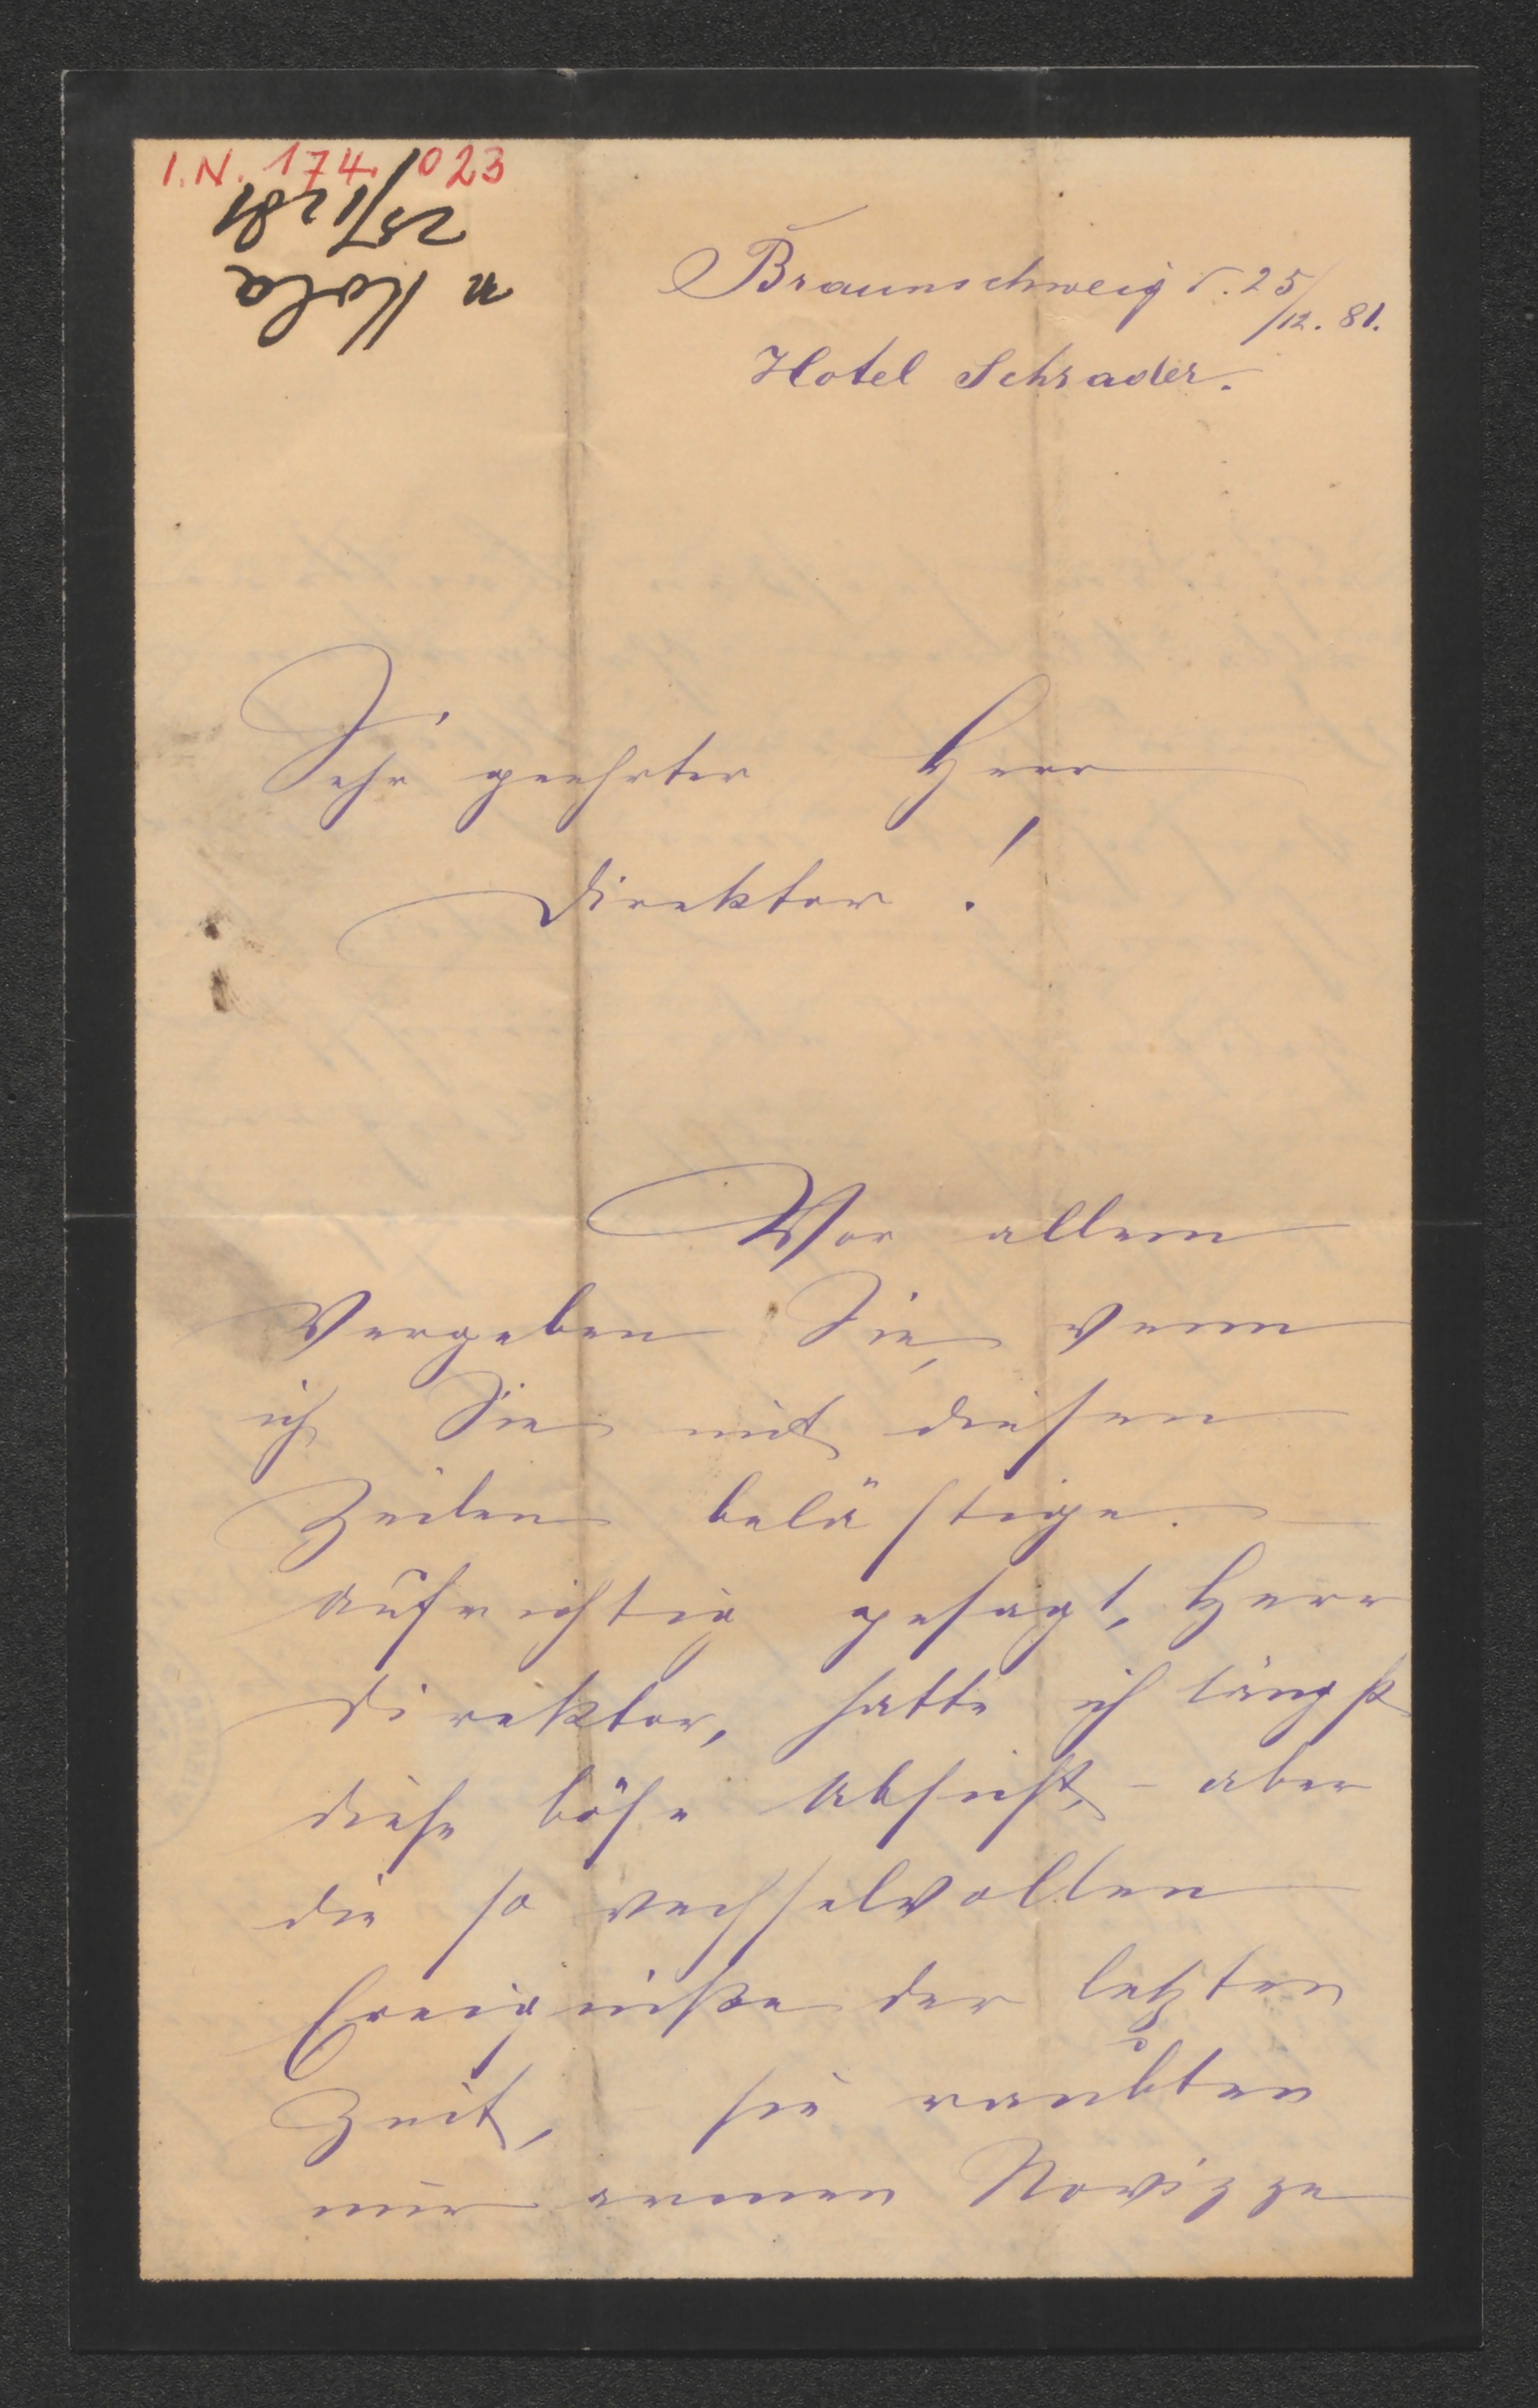 I.N. 174.023
25/12 81
Kola
Braunschweig d. 25/12. 81.
Hotel Schrader.
Sehr geehrter Herr
Direktor!
Vor allem
Vergeben Sie, wenn
ich Sie mit diesen
Zeilen belästige. —
Aufrichtig gesagt, Herr
Direktor, hatte ich längst
diese böse Absicht, – aber
die so wechselvollen
Ereigniße der letzten
Zeit, – sie raubten
mir armen Novizze